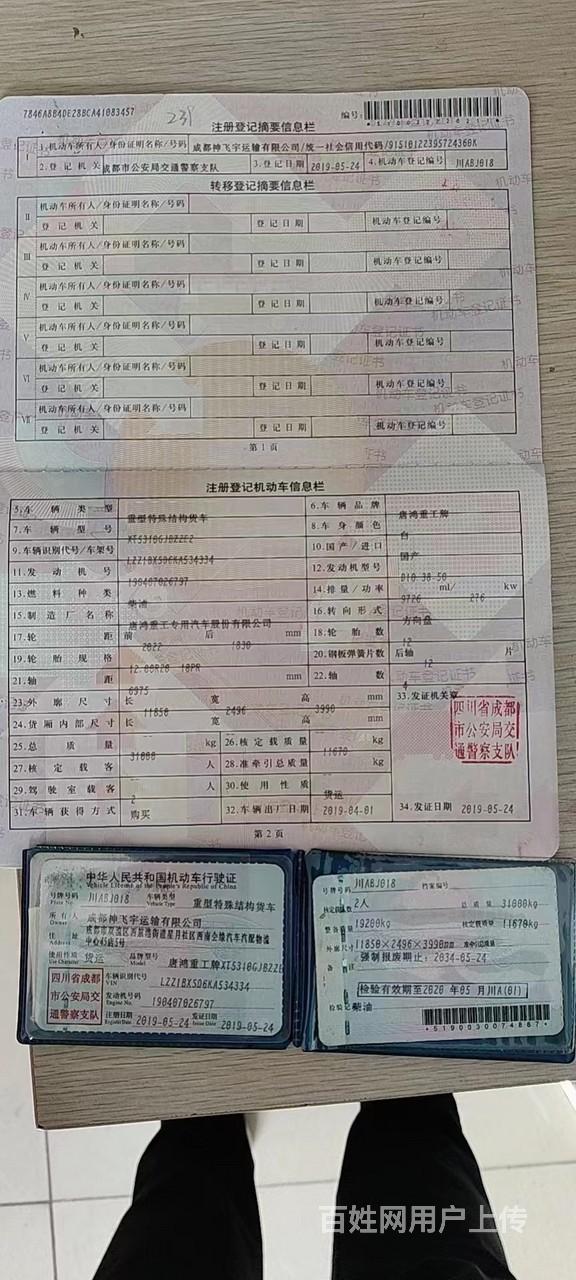 7846A884DE28BCA41083457
239
注册登记摘要信息栏
编号:
Ⅰ 1.机动车所有人/身份证明名称/号码 成都神飞宇运输有限公司/统一社会信用代码/91510122395724360K
2.登记机关 成都市公安局交通警察支队 3.登记日期 2019-05-24 4.机动车登记编号 川ABJ018
转移登记摘要信息栏
Ⅱ 机动车所有人/身份证明名称/号码
登记机关 登记日期 机动车登记编号
Ⅲ 机动车所有人/身份证明名称/号码
登记机关 登记日期 机动车登记编号
Ⅳ 机动车所有人/身份证明名称/号码
登记机关 登记日期 机动车登记编号
Ⅴ 机动车所有人/身份证明名称/号码
登记机关 登记日期 机动车登记编号
Ⅵ 机动车所有人/身份证明名称/号码
登记机关 登记日期 机动车登记编号
Ⅶ 机动车所有人/身份证明名称/号码
登记机关 登记日期 机动车登记编号
第1页
注册登记机动车信息栏
5.车辆类型 重型特殊结构货车 6.车辆品牌 唐鸿重工牌
7.车辆型号 8.车身颜色 白
9.车辆识别代号/车架号 LZZ1BXSD6KA534334 10.国产/进口 国产
11.发动机号 190407026797 12.发动机型号 D10.38-50
13.燃料种类 柴油 14.排量/功率 9726 ml/ 276 kw
15.制造厂名称 唐鸿重工专用汽车股份有限公司 16.转向形式 方向盘
17.轮距 前 2022 后 1830 mm 18.轮胎数 12
19.轮胎规格 12.00R20 18PR 20.钢板弹簧片数 后轴 12 片
21.轴距 mm 22.轴数
23.外廓尺寸 长 11850 宽 2496 高 3990 mm 33.发证机关章
24.货厢内部尺寸 长 宽 高 mm
四川省成都
市公安局交
通警察支队
25.总质量 31000 kg 26.核定载质量 11670 kg
27.核定载客 人 28.准牵引总质量 kg
29.驾驶室载客 2 人 30.使用性质 货运
31.车辆获得方式 购买 32.车辆出厂日期 2019-04-01 34.发证日期 2019-05-24
第2页
中华人民共和国机动车行驶证
Vehicle License of the People's Republic of China
号牌号码 川ABJ018 车辆类型 重型特殊结构货车
Plate No. Vehicle Type
所有人 成都神飞宇运输有限公司
Owner
住址
使用性质 货运 品牌型号 唐鸿重工牌
Use Character
四川省成都
市公安局交
通警察支队
车辆识别代号 LZZ1BXSD6KA534334
VIN
发动机号码 190407026797
Engine No.
注册日期 2019-05-24 发证日期 2019-05-24
Register Date Issue Date
号牌号码 川ABJ018 档案编号
核定载人数 2人 总质量 31000kg
整备质量 19200kg 核定载质量 11670kg
外廓尺寸 11850×2496×3990mm 准牵引总质量
备注 强制报废期止:2034-05-24
检验有效期至2020年05月川A(01)
检验记录 柴油
*5190003007486 7*
百姓网用户上传